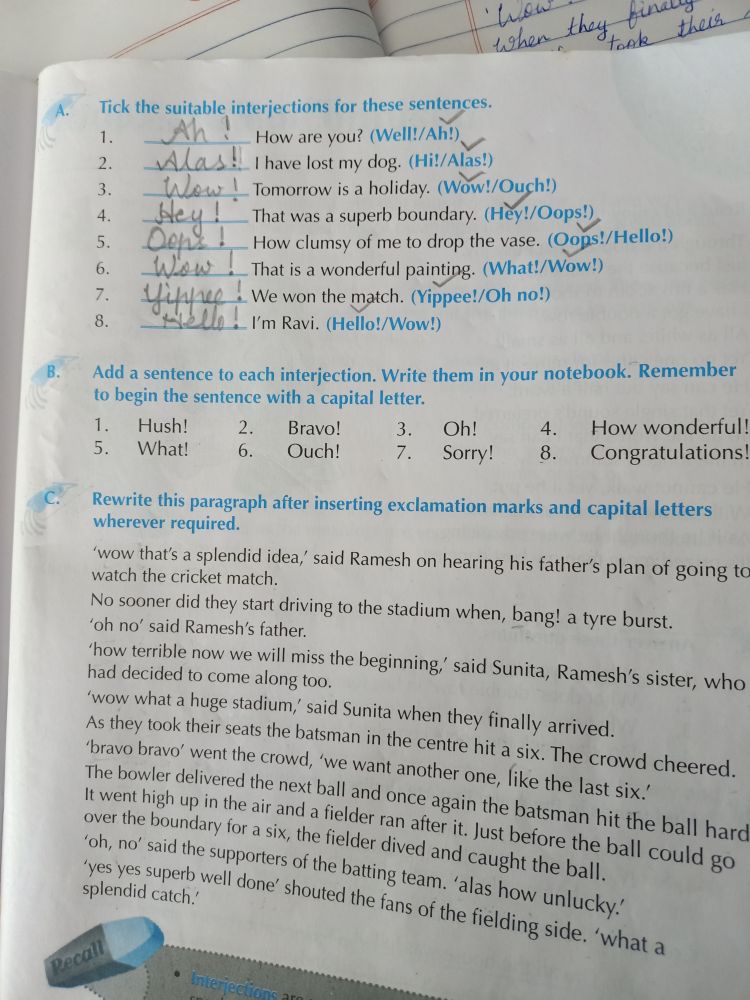 'Wow
when they finally
took their
A. Tick the suitable interjections for these sentences.
1. Ah! How are you? (Well!/Ah!)
2. Alas!! I have lost my dog. (Hi!/Alas!)
3. Wow! Tomorrow is a holiday. (Wow!/Ouch!)
4. Hey! That was a superb boundary. (Hey!/Oops!)
5. Oops! How clumsy of me to drop the vase. (Oops!/Hello!)
6. Wow! That is a wonderful painting. (What!/Wow!)
7. Yippee! We won the match. (Yippee!/Oh no!)
8. Hello! I'm Ravi. (Hello!/Wow!)
B. Add a sentence to each interjection. Write them in your notebook. Remember
to begin the sentence with a capital letter.
1. Hush! 2. Bravo! 3. Oh! 4. How wonderful!
5. What! 6. Ouch! 7. Sorry! 8. Congratulations!
C. Rewrite this paragraph after inserting exclamation marks and capital letters
wherever required.
'wow that's a splendid idea,' said Ramesh on hearing his father's plan of going to
watch the cricket match.
No sooner did they start driving to the stadium when, bang! a tyre burst.
'oh no' said Ramesh's father.
'how terrible now we will miss the beginning,' said Sunita, Ramesh's sister, who
had decided to come along too.
'wow what a huge stadium,' said Sunita when they finally arrived.
As they took their seats the batsman in the centre hit a six. The crowd cheered.
'bravo bravo' went the crowd, 'we want another one, like the last six.'
The bowler delivered the next ball and once again the batsman hit the ball hard
It went high up in the air and a fielder ran after it. Just before the ball could go
over the boundary for a six, the fielder dived and caught the ball.
'oh, no' said the supporters of the batting team. 'alas how unlucky.'
'yes yes superb well done' shouted the fans of the fielding side. 'what a
splendid catch.'
Recall
• Interjections are